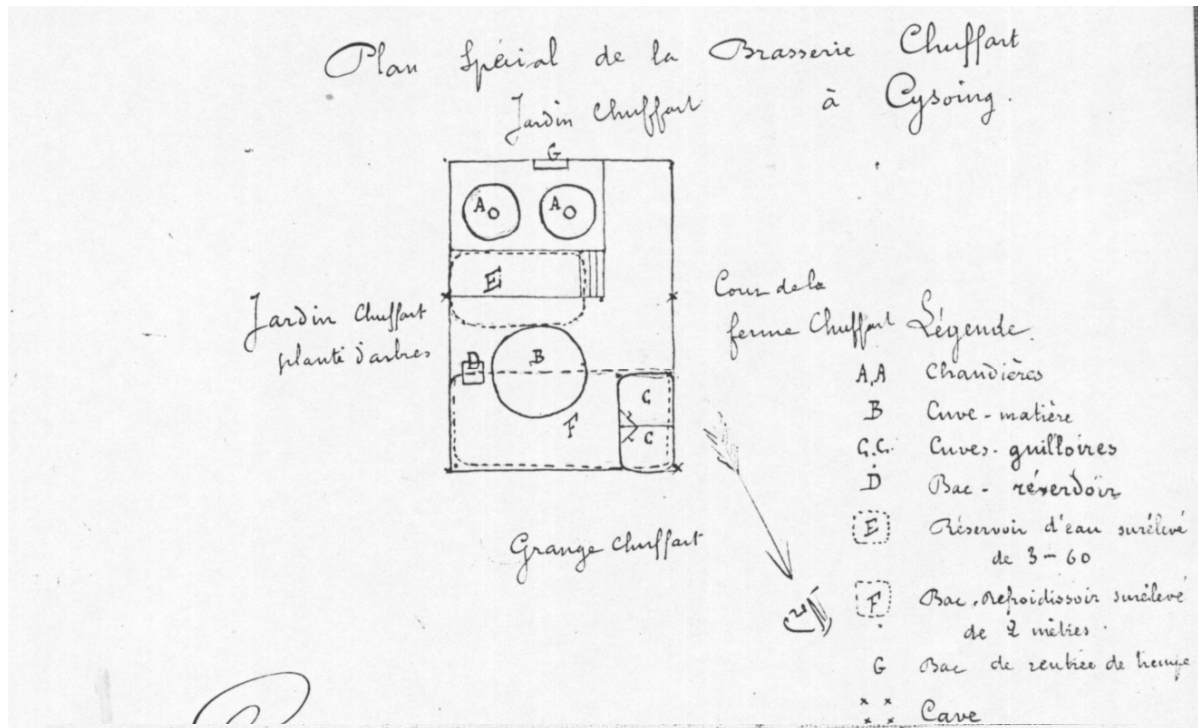 Plan Spécial de la Brasserie Chuffart
à Cysoing.
Jardin Chuffart
G
A A
E
Jardin Chuffart
planté d'arbres
Cour de la
ferme Chuffart
D B
C
F C
Grange Chuffart
Légende
A,A Chaudières
B Cuve-matière
C.C. Cuves-guilloires
D Bac-réverdoir
E Réservoir d'eau surélevé
de 3-60
F Bac-Refroidissoir surélevé
de 2 mètres.
G Bac de rentrée de trempe
Cave